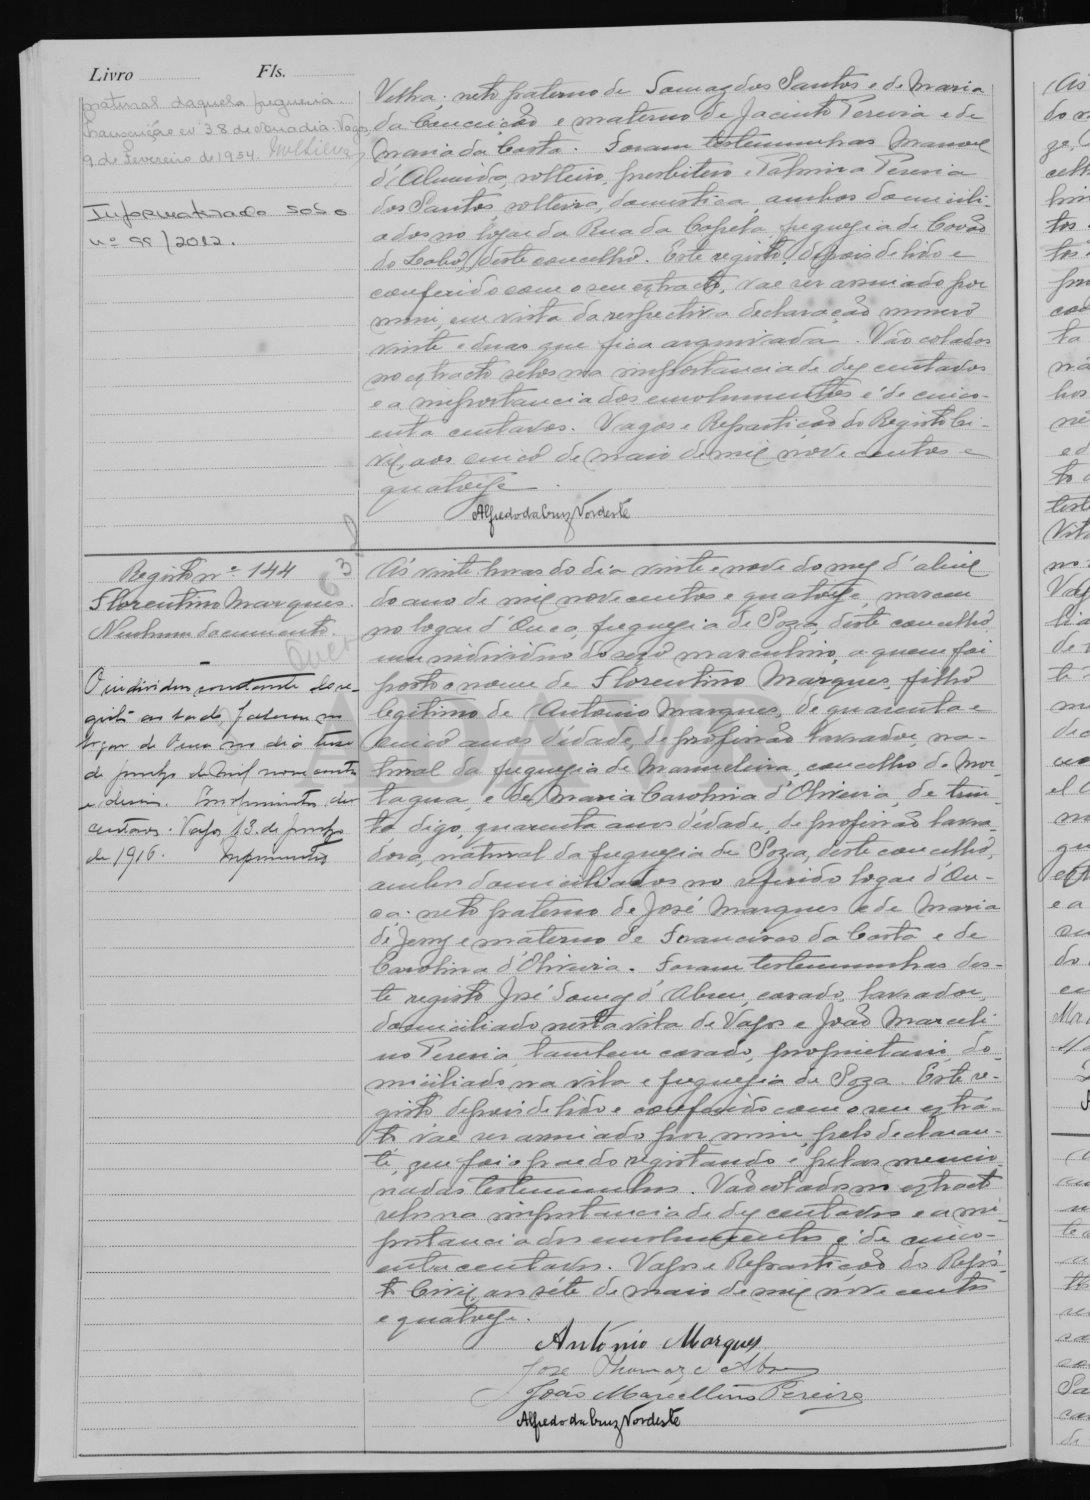 Livro Fls.
natural daquela freguesia.
9 de Fevereiro de 1954.
Informatizado sob o
nº 99/2012.
Velha; neto paterno de Tomaz dos Santos e de Maria
da Conceição e materno de Jacinto Pereira e de
Maria da Costa. Foram testemunhas Manoel
d'Almeida, solteiro, presbitero e Palmira Pereira
dos Santos, solteira, domestica, ambos domicili-
ados no logar da Rua da Capela, freguezia de Covão
do Lobo, deste concelho. Este registo, depois de lido e
conferido com o seu extracto, vae ser assinado por
mim, em vista da respectiva declaração numero
vinte e duas que fica arquivada. Vão colados
no extracto selos na importancia de dez centavos
e a importancia dos emolumentos é de cinco-
enta centavos. Vagos e Repartição do Registo Ci-
vil, aos cinco de maio de mil nove centos e
quatorze.
Alfredo da Cruz Nordeste
Registo nº 144
Florentino Marques.
Nenhum documento.
Ouca
O individuo constante do re-
gisto ao lado faleceu no
logar de Ouca no dia treze
de junho de mil nove centos
e deseis. Emolumentos dez
centavos. Vagos 13 de junho
de 1916.
Ás vinte horas do dia vinte e nove do mez d'abril
do ano de mil nove centos e quatorze, nasceu
no logar d'Ouca, freguezia de Soza, deste concelho
um individuo do sexo masculino, a quem foi
posto o nome de Florentino Marques, filho
legitimo de Antonio Marques, de quarenta e
cinco anos d'idade, de profissão lavrador, na-
tural da freguezia de Marmeleira, concelho de Mor-
tagua, e de Maria Carolina d'Oliveira, de trin-
ta digo, quarenta anos d'idade, de profissão lavra-
dora, natural da freguezia de Soza, deste concelho,
ambos domiciliados no referido logar d'Ou-
ca: neto paterno de José Marques e de Maria
de Jesus e materno de Francisco da Costa e de
Carolina d'Oliveira. Foram testemunhas des-
te registo José Tomaz d'Abreu, casado, lavrador,
domiciliado nesta vila de Vagos e João Marceli-
no Pereira, tambem casado, proprietario, do-
miciliado na vila e freguezia de Soza. Este re-
gisto depois de lido e conferido com o seu extrá-
to vae ser assinado por mim, pelo declaran-
te, que foi o pae do registando e pelas mencio-
nadas testemunhas. Vão colados no extracto
selos na importancia de dez centavos e a im-
portancia dos emolumentos é de cinco-
enta centavos. Vagos e Repartição do Regis-
to Civil, aos séte de maio de mil nove centos
e quatorze.
António Marques
José Thomaz d'Abreu
João Marcellino Pereira
Alfredo da Cruz Nordeste